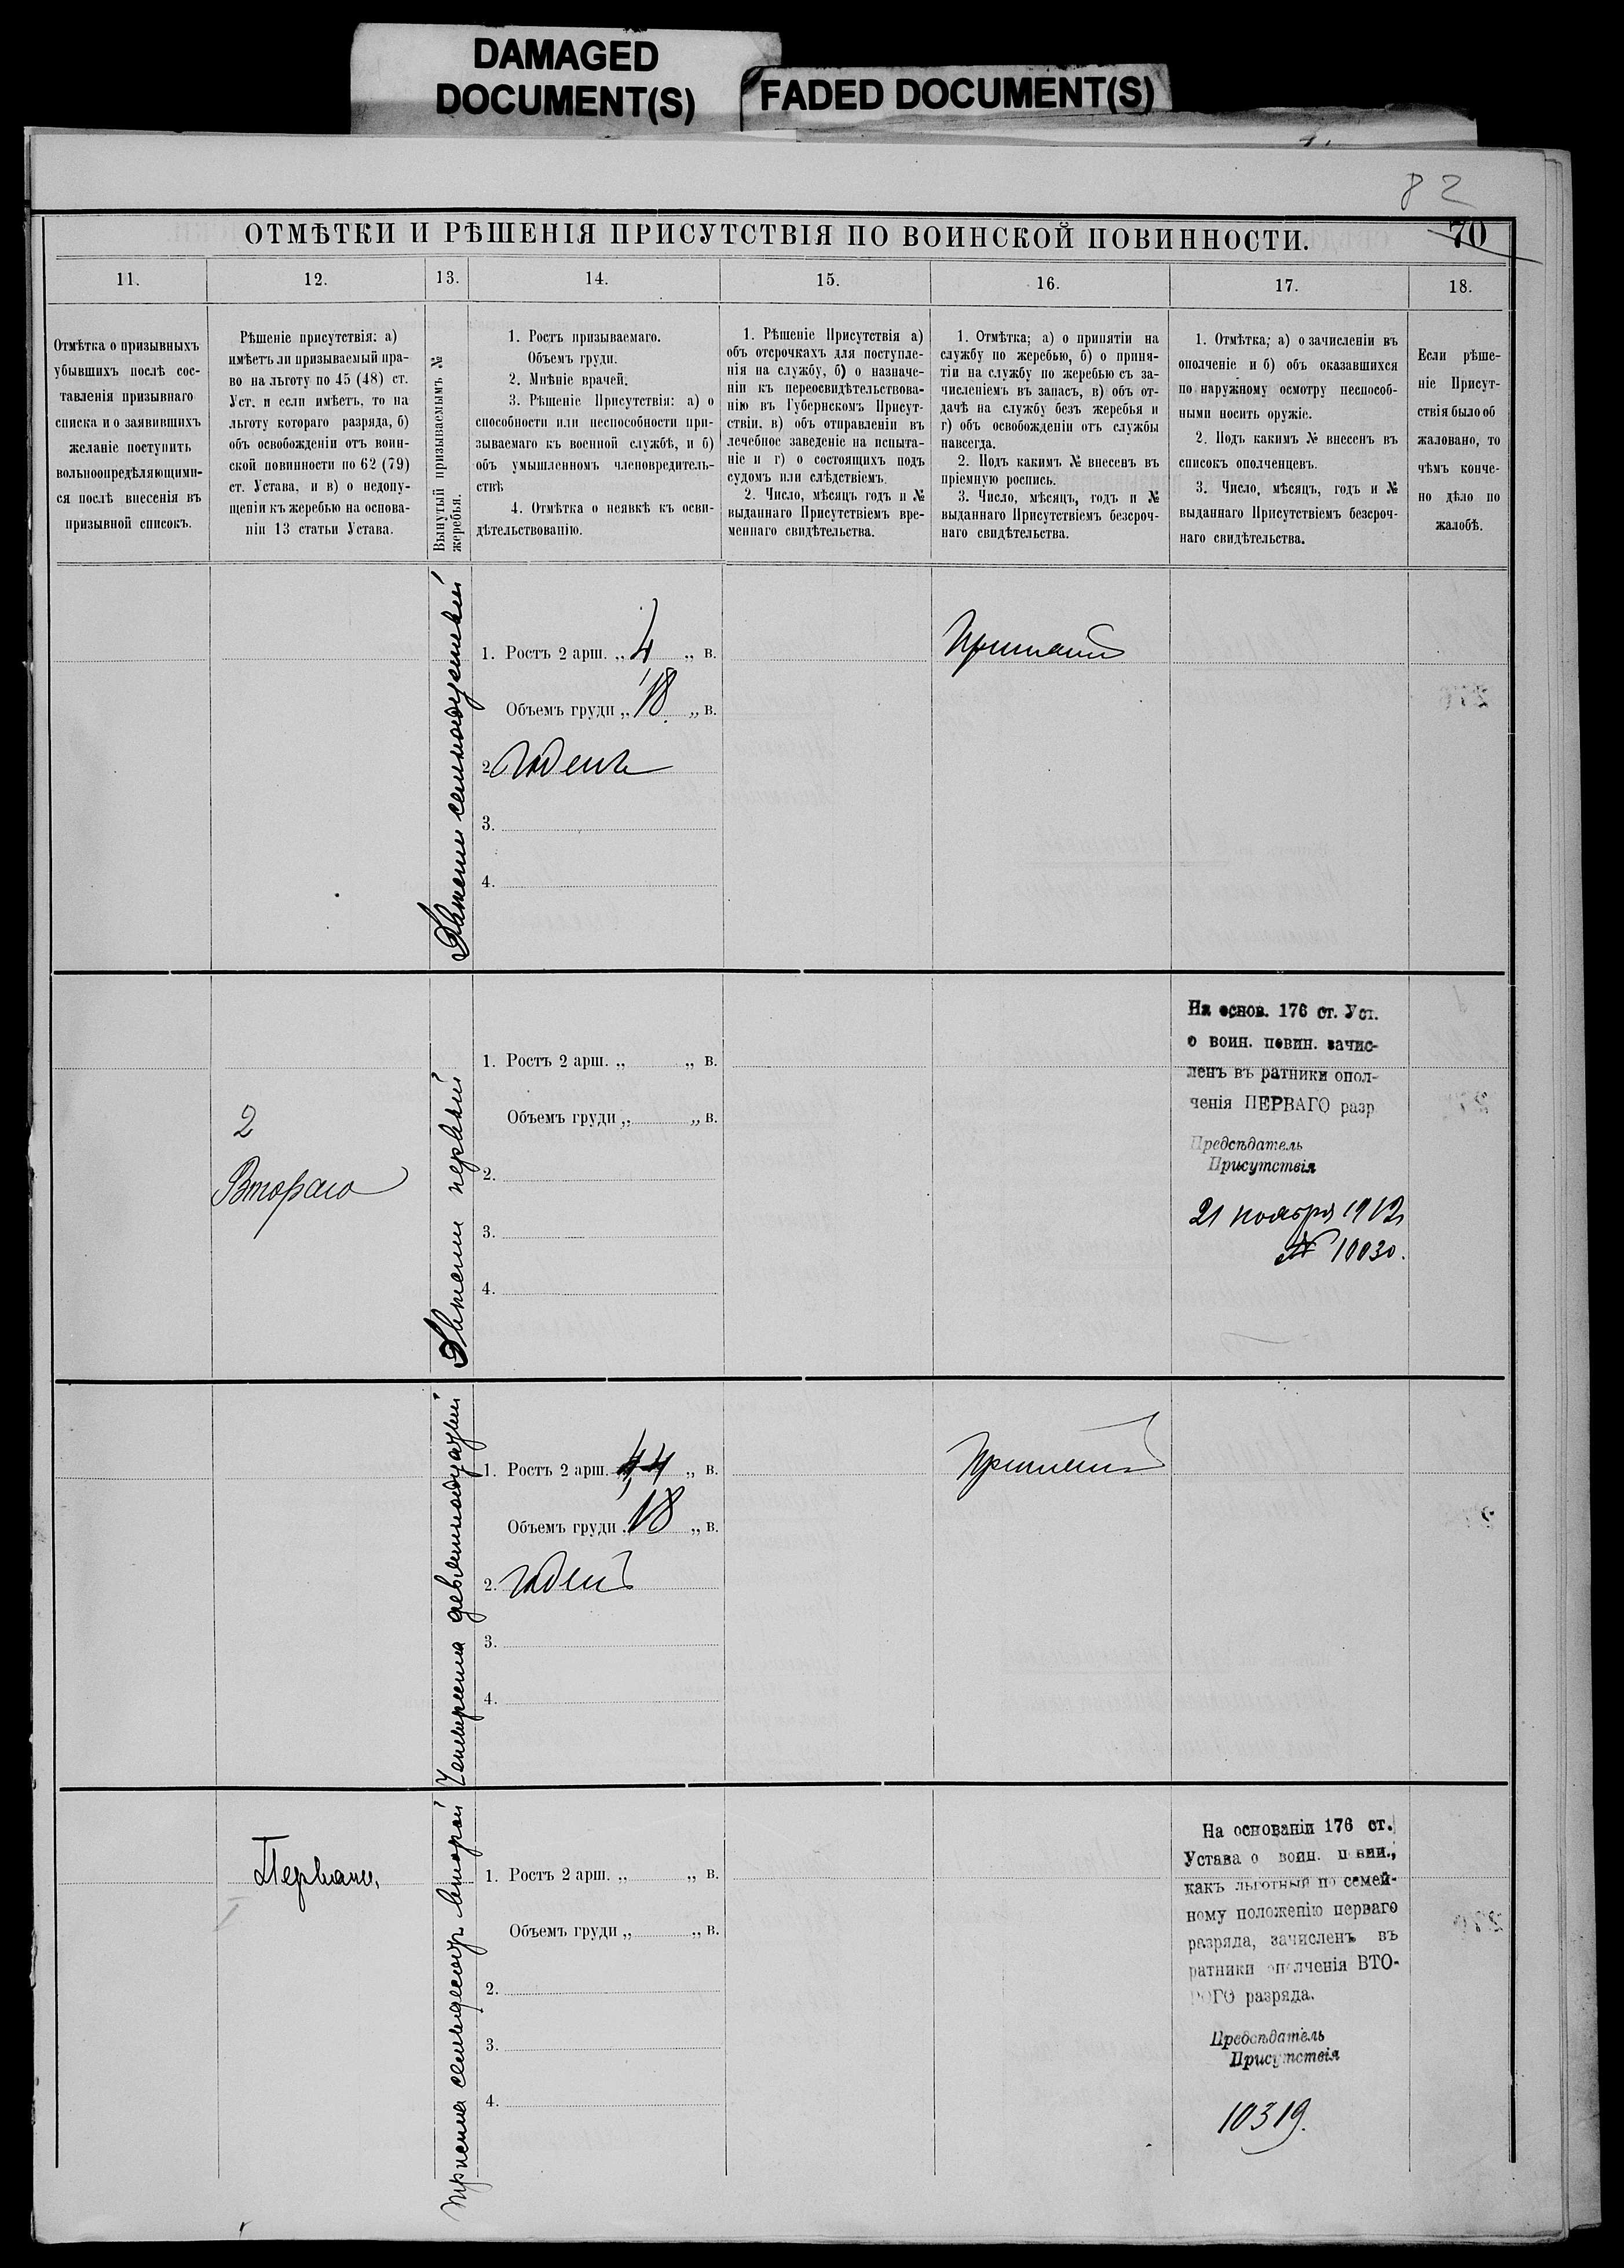 DAMAGED
DOCUMENT(S)
FADED DOCUMENT(S)
82
ОТМѢТКИ И РѢШЕНІЯ ПРИСУТСТВІЯ ПО ВОИНСКОЙ ПОВИННОСТИ.
70
11.
12.
13.
14.
15.
16.
17.
18.
Отмѣтка о призывныхъ
убывшихъ послѣ сос-
тавленія призывнаго
списка и о заявившихъ
желаніе поступить
вольноопредѣляющими-
ся послѣ внесенія въ
призывной списокъ.
Рѣшеніе присутствія: а)
имѣетъ ли призываемый пра-
во на льготу по 45 (48) ст.
Уст. и если имѣетъ, то на
льготу котораго разряда, б)
объ освобожденіи отъ воин-
ской повинности по 62 (79)
ст. Устава, и в) о недопу-
щеніи къ жеребью на основа-
ніи 13 статьи Устава.
Вынутый призываемымъ №
жеребья.
1. Ростъ призываемаго.
Объемъ груди.
2. Мнѣніе врачей.
3. Рѣшеніе Присутствія: а) о
способности или неспособности при-
зываемаго къ военной службѣ, и б)
объ умышленномъ членовредитель-
ствѣ
4. Отмѣтка о неявкѣ къ осви-
дѣтельствованію.
1. Рѣшеніе Присутствія а)
объ отсрочкахъ для поступле-
нія на службу, б) о назначе-
ніи къ переосвидѣтельствова-
нію въ Губернскомъ Присут-
ствіи, в) объ отправленіи въ
лечебное заведеніе на испыта-
ніе и г) о состоящихъ подъ
судомъ или слѣдствіемъ.
2. Число, мѣсяцъ годъ и №
выданнаго Присутствіемъ вре-
меннаго свидѣтельства.
1. Отмѣтка; а) о принятіи на
службу по жеребью, б) о приня-
тіи на службу по жеребью съ за-
численіемъ въ запасъ, в) объ от-
дачѣ на службу безъ жеребья и
г) объ освобожденіи отъ службы
навсегда.
2. Подъ какимъ № внесенъ въ
пріемную роспись.
3. Число, мѣсяцъ, годъ и №
выданнаго Присутствіемъ безсроч-
наго свидѣтельства.
1. Отмѣтка; а) о зачисленіи въ
ополченіе и б) объ оказавшихся
по наружному осмотру неспособ-
ными носить оружіе.
2. Подъ какимъ № внесенъ въ
списокъ ополченцевъ.
3. Число, мѣсяцъ, годъ и №
выданнаго Присутствіемъ безсроч-
наго свидѣтельства.
Если рѣше-
ніе Присут-
ствія было об
жаловано, то
чѣмъ конче-
но дѣло по
жалобѣ.
1. Ростъ 2 арш. „ 4 „ в.
Объемъ груди „ 18 „ в.
2. Годенъ
3.
4.
Принятъ
2
Втораго
Двѣсти первый
1. Ростъ 2 арш. „ „ в.
Объемъ груди „ „ в.
2.
3.
4.
На основ. 176 ст. Уст.
о воин. повин. зачис-
ленъ въ ратники опол-
ченія ПЕРВАГО разр
Предсѣдатель
Присутствія
21 ноября 1912
№ 10030.
Четыреста девятнадцатый
1. Ростъ 2 арш. 4 „ в.
Объемъ груди „ 18 „ в.
2. годенъ
3.
4.
Принятъ
Перваго,
Триста семьдесятъ второй
1. Ростъ 2 арш. „ „ в.
Объемъ груди „ „ в.
2.
3.
4.
На основаніи 176 ст.
Устава о воин. повин.,
какъ льготный по семей-
ному положенію перваго
разряда, зачисленъ въ
ратники ополченія ВТО-
РОГО разряда.
Предсѣдатель
Присутствія
10319.